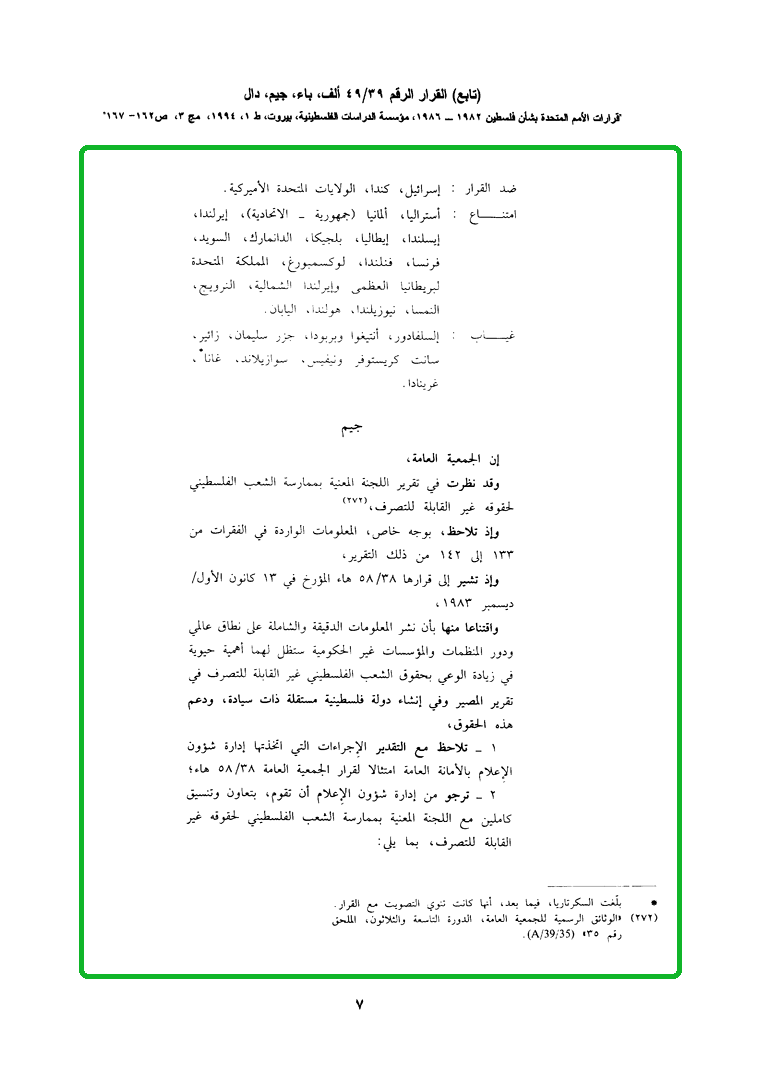 (تابع) القرار الرقم ٤٩/٣٩ ألف، باء، جيم، دال
"قرارات الأمم المتحدة بشأن فلسطين ١٩٨٢ ــ ١٩٨٦، مؤسسة الدراسات الفلسطينية، بيروت، ط ١، ١٩٩٤، مج ٣، ص١٦٢- ١٦٧"
ضد القرار : إسرائيل، كندا، الولايات المتحدة الأميركية.
امتنـــــاع : أستراليا، ألمانيا (جمهورية ـ الاتحادية)، إيرلندا،
إيسلندا، إيطاليا، بلجيكا، الدانمارك، السويد،
فرنسا، فنلندا، لوكسمبورغ، المملكة المتحدة
لبريطانيا العظمى وإيرلندا الشمالية، النرويج،
النمسا، نيوزيلندا، هولندا، اليابان.
غيـــــاب : إلسلفادور، أنتيغوا وبربودا، جزر سليمان، زائير،
سانت كريستوفر ونيفيس، سوازيلاند، غانا*،
غرينادا.
جيم
إن الجمعية العامة،
وقد نظرت في تقرير اللجنة المعنية بممارسة الشعب الفلسطيني
لحقوقه غير القابلة للتصرف،(٢٧٢)
وإذ تلاحظ، بوجه خاص، المعلومات الواردة في الفقرات من
١٣٣ إلى ١٤٢ من ذلك التقرير،
وإذ تشير إلى قرارها ٥٨/٣٨ هاء المؤرخ في ١٣ كانون الأول/
ديسمبر ١٩٨٣،
واقتناعا منها بأن نشر المعلومات الدقيقة والشاملة على نطاق عالمي
ودور المنظمات والمؤسسات غير الحكومية ستظل لهما أهمية حيوية
في زيادة الوعي بحقوق الشعب الفلسطيني غير القابلة للتصرف في
تقرير المصير وفي إنشاء دولة فلسطينية مستقلة ذات سيادة، ودعم
هذه الحقوق،
١ ـ تلاحظ مع التقدير الإجراءات التي اتخذتها إدارة شؤون
الإعلام بالأمانة العامة امتثالا لقرار الجمعية العامة ٥٨/٣٨ هاء؛
٢ ـ ترجو من إدارة شؤون الإعلام أن تقوم، بتعاون وتنسيق
كاملين مع اللجنة المعنية بممارسة الشعب الفلسطيني لحقوقه غير
القابلة للتصرف، بما يلي:
* بلّغت السكرتاريا، فيما بعد، أنها كانت تنوي التصويت مع القرار.
(٢٧٢) «الوثائق الرسمية للجمعية العامة، الدورة التاسعة والثلاثون، الملحق
رقم ٣٥» (A/39/35).
٧